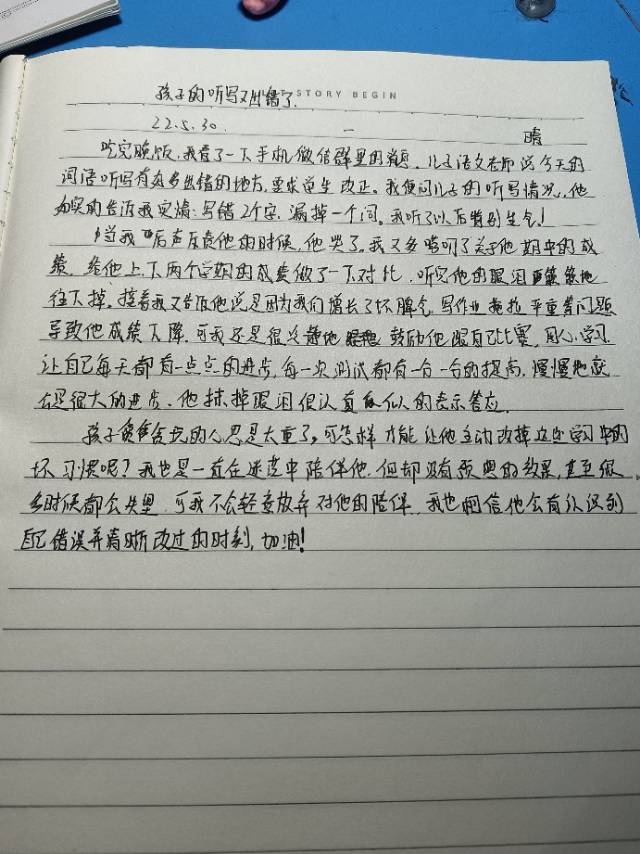 孩子的听写又出错了.
STORY BEGIN
22.5.30. 一 晴
吃完晚饭,我看了一下手机微信群里的消息,儿子语文老师说今天的
词语听写有太多出错的地方,要求学生改正。我便问儿子的听写情况,他
如实的告诉我实情:写错2个字,漏掉一个词。我听了以后特别生气!
当我 声斥责他的时候,他哭了。我又多嘴问了关于他期中的成
绩,给他上下两个学期的成绩做了一下对比,听完他的眼泪 地
往下掉。接着我又告诉他说是因为我们增长了坏脾气,写作业拖拉严重等问题
导致他成绩下降,可我还是很冷静地 鼓励他跟自己比赛,用心学习
让自己每天都有一点点的进步,每一次测试都有一分一分的提高,慢慢地就
会是很大的进步。他抹掉眼泪很认真 似的表示答应。
孩子 贪玩的心思是太重了,可怎样才能让他主动改掉这些学习中的
坏习惯呢?我也是一直在迷茫中陪伴他,但却没有预想的效果,甚至很
多时候都会失望,可我不会轻意放弃对他的陪伴,我也相信他会有认识到
自己错误并清晰改过的时刻,加油!